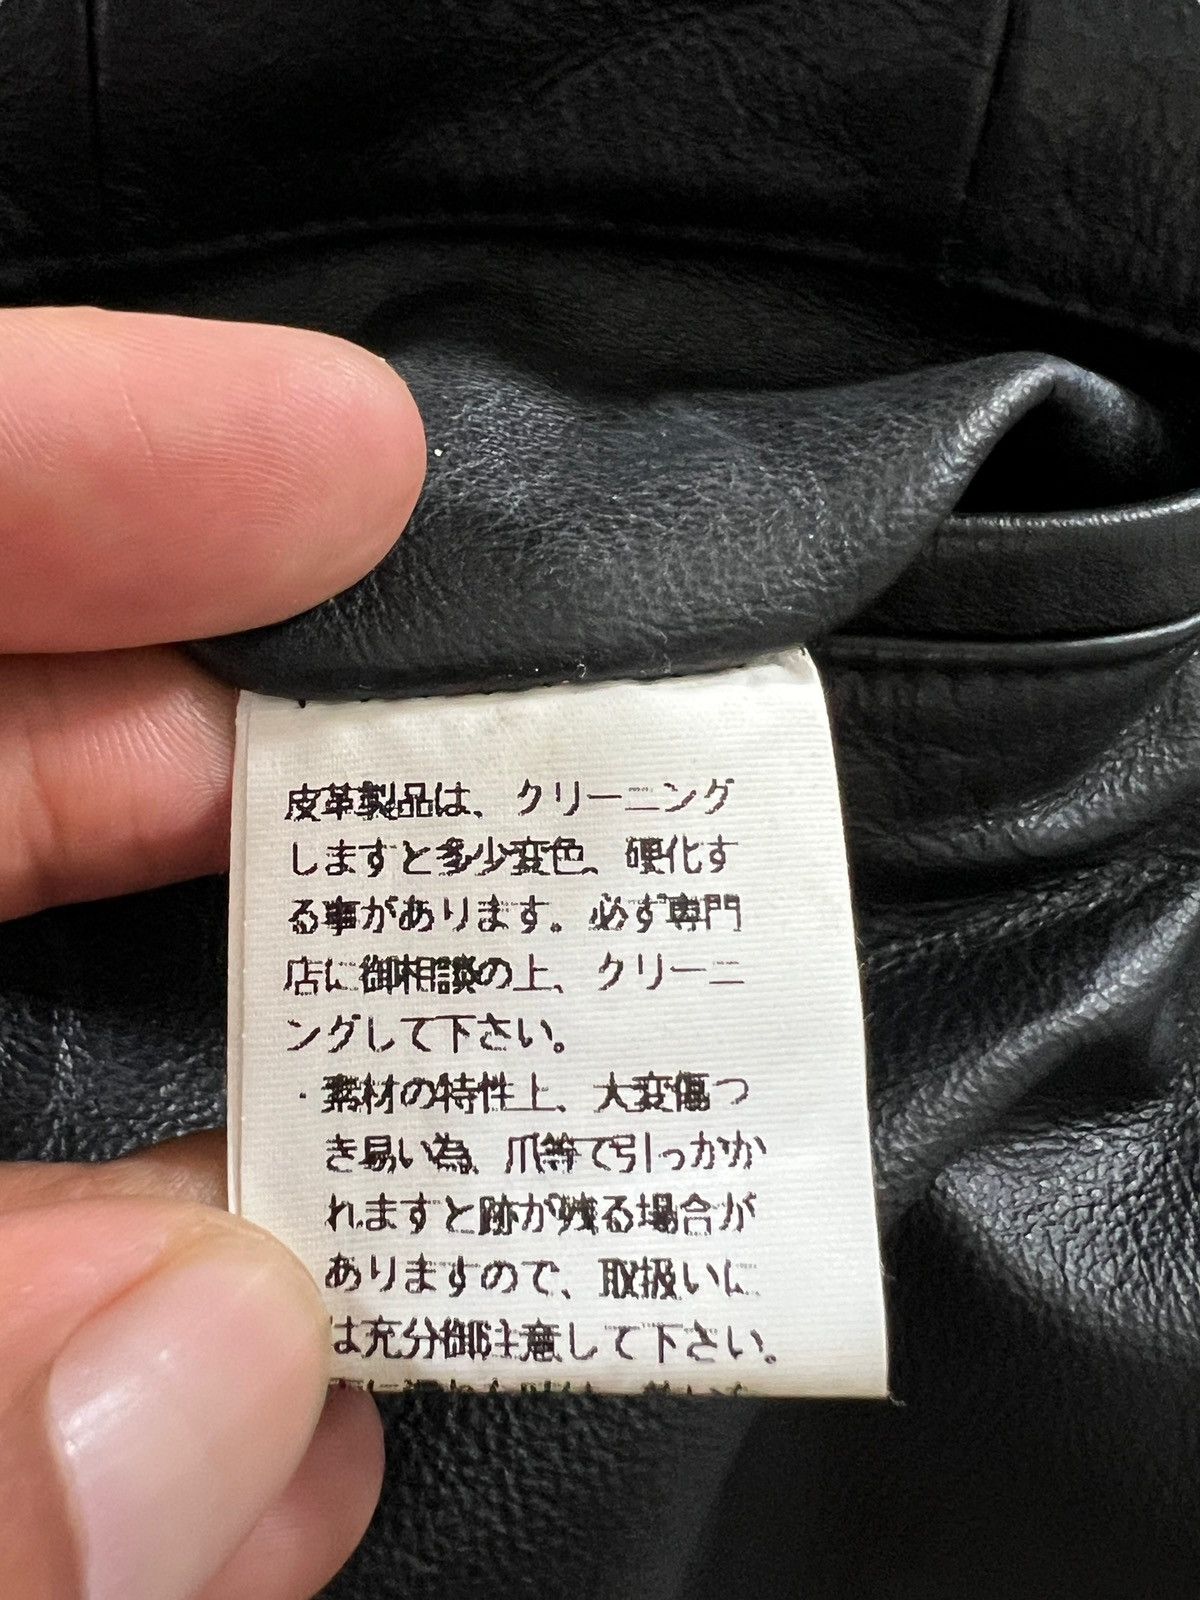 皮革製品は、クリーニング
しますと多少変色、硬化す
る事があります。必ず専門
店に御相談の上、クリーニ
ングして下さい。
・素材の特性上、大変傷つ
き易い為、爪等で引っかか
れますと跡が残る場合が
ありますので、取扱いに
は充分御注意して下さい。